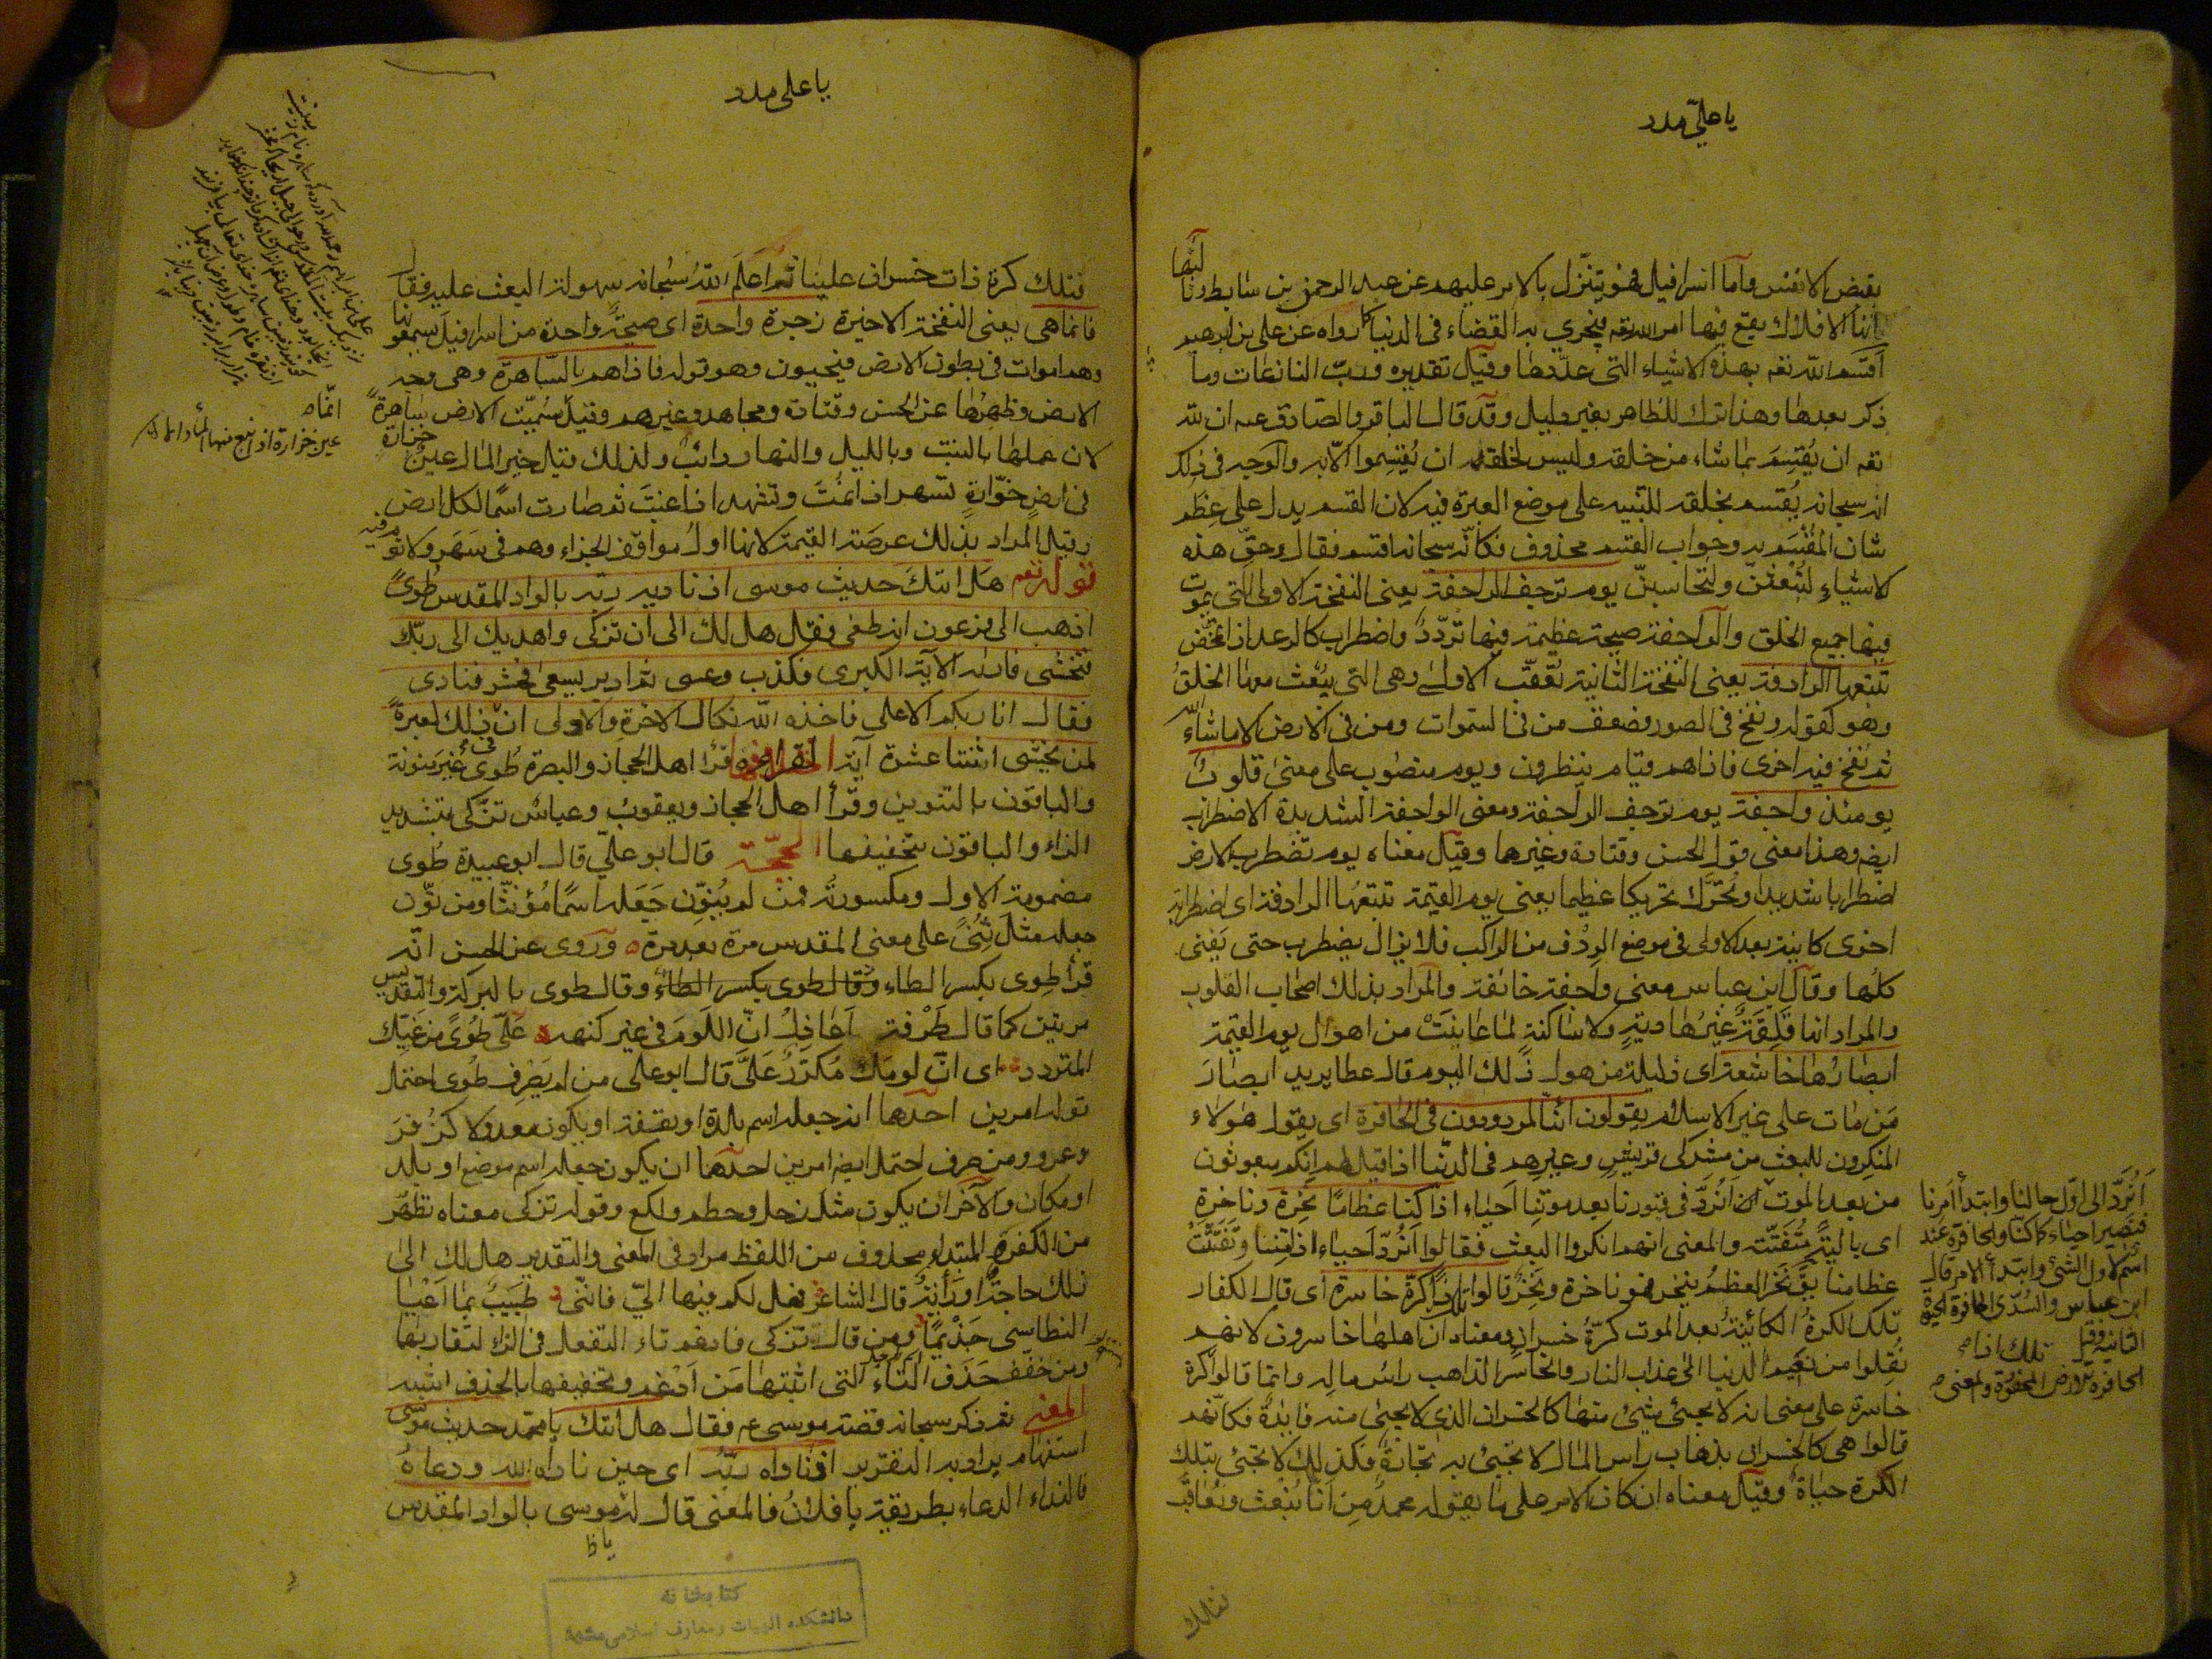 يا علىّ مدد
بقبض الانفس وآما اسرافيل فهو يتنزّل بالامر عليهم عن عبد الرحمن بن سابط وثالثها
انها الافلاك يقع فيها امر الله تعه فيجري به القضاء فى الدنيا كا رواه عن على بن ابرهيم
اقسم الله تعه بهذه الاشياء التى عدّدها وقيل تقديره وربّ النازعات وما
ذكر بعدها وهذا ترك للظاهر بغير دليل وقد قال الباقر والصادق عه ان لله
تعه ان يُقسِمَ بما شاء من خلقه وليس لخلقه ان يُقسِموا الّا به والوجه فى ذلك
انه سبحانه يُقسم بخلقه للتنبيه على موضع العبرة فيه لان القسم يدل على عِظَم
شان المقسَم به وجواب القسم محذوف فكانّه سبحانه اقسم فقال وحقّ هذه
لاشياءِ لتُبعثنّ ولتحاسبنّ يوم ترجف الراجفة يعنى النفخة الاولى التى يموت
فيها جميع الخلق والراجفة صيحة عظيمة فيها تردّد واضطراب كالرعد اذا تمخّض
تتبعها الرادفة يعنى النفخة الثانية تعُقّب الاولى وهى التى يبُعث معها الخلق
وهو كقوله ونفخ فى الصور فصعق من فى السموات ومن فى الارض الا ما شاء
ثم نفخ فيه اخرى فاذا هم قيام ينظرون ويوم منصوب على معنى قلوبٌ
يومئذ واجفة يوم ترجف الراجفة ومعنى الواجفة الشديدة الاضطراب
ايضه وهذا معنى قول الحسن وقتادة وغيرها وقيل معناه يوم تضطرب الارض
اضطرابا شديدا وتُحرّك تحريكا عظيما يعنى يوم القيمة تتبعُها الرادفة اى اضطرابة
اخرى كاينة بعد الاولى فى موضع الرِدف من الراكب فلا يزال يضطرب حتى يَفنى
كلها وقال ابن عباس معنى واجفة خائفة والمراد بذلك اصحاب القلوب
والمراد انها قلِقَةٌ غيرُ هاديةٍ ولا ساكنةٍ لما عاينَتْ من اهوال يوم القيمة
ابصارُها خاشعة اى ذليلة من هول ذلك اليوم قال عطا يريد ابصارَ
مَن مات على غير الاسلام يقولون ائنّا لمردودون فى الحافرة اى يقول هؤلاء
المنكِرون للبعث مِن مشركى قريشٍ وغيرهم فى الدنيا اذا قيل لهم انكم مبعوثون
من بعد الموت انُردّ فى قبورنا بعد موتنا احياء اذا كنّا عظامًا نخِرة وناخرة
اى باليةً مُتفتّتة والمعنى انهم انكروا البعث فقالوا اَنُردّ احياء اذا متنا وتفتّتت
عظامنا يقَ نخَر العظمُ ينخر فهو ناخرة ونَخِرٌ قالوا تلك اذًا كرّة خاسرة اى قال الكفار
تلك الكرةُ الكائينةُ بعد الموت كرّةُ خسران ومعناه ان اهلها خاسرون لانهم
نُقِلوا من نعيم الدنيا الى عذاب النار والخاسر الذاهب راسُ ماله وانما قالوا كرة
خاسرة على معنى انه لا يجيئ شيئ منها كالخسران الذى لا يجيئ منه فايدةٌ فكانّهم
قالوا هى كالخسران بذهاب راس المال لا تجيئ به تجارةٌ فكذلك لا تجيئ بتلك
الكرة حياةٌ وقيل معناه ان كان الامر على ما يقوله محمدٌ مِن انّا نُبعث ونُعاقَب
فتلك
أنُردّ الى اوّل حالنا وابتداء أمرنا
فنصير احياء كما كنا والحافرة عند
اسم لاول الشئ وابتداء الامر قال
ابن عباس والسُدّى الحافرة الحيوة
الثانية وقيل
الحافرة الارض المحفورة والمعنى
يا على مدد
فتلك كرة ذات خسران علينا ثم اعلَمَ اللهُ سُبحانه سهولة البعث عليه فقال
فانما هى يعنى النفخة الاخيرة زجرة واحدة اى صيحةٌ واحدة من اسرافيل يسمعونها
وهم اموات فى بطون الارض فيحيون وهو قوله فاذا هم بالسّاهرة وهى وجه
الارض وظهرُها عن الحسن وقتادة ومجاهد وغيرهم وقيل سُمّيت الارض ساهرةً
لان عملها بالنبت وبالليل والنهار دائب ولذلك قيل خير المال عينٌ خرّارة
فى ارضٍ خوّارةٍ تسهر اذا نمتَ وتشهد اذا غبتَ ثم صارت اسمًا لكل ارض
وقيل المراد بذلك عرصة القيمة لانها اول مواقف الجزاء وهم فى سَهَر ولا نوم فيه
قوله تعه هَل اتيكَ حديثُ موسى اذ ناديه ربّه بالواد المقدس طُوىً
اذهب الى فرعون انه طغى وفقل هل لك الى ان تزكّى واهديك الى ربّك
فتخشى فاريه الآية الكبرى فكذب وعصى ثم ادبر يسعى فحشر فنادى
فقال انا ربكم الاعلى فاخذه الله نكال الاخرة والاولى ان فى ذلك لعبرةً
لمن يخشى اثنتا عشرة آية القراءة قرأ اهل الحجاز والبصرة طُوى غيرَ منونة
والباقون بالتنوين وقرأ اهل الحجاز ويعقوب وعباس تزّكى بتشديد
الزاء والباقون بتخفيفها الحجّة قال ابو علىّ قال ابو عبيدة طُوى
مضمومة الاول ومكسورتُه فمن لم يُنوّن جَعَله اسمًا مُؤنثًا ومن نوّن
جعله مثلَ ثِنىً على معنى المقدس مرة بعد مرة وروى عن الحسن انّه
قرأ طِوى بكسر الطاء وقال طوى بكسر الطاء وقال طوى بالبركة والتقديس
مرتين كما قال طَرْفة اَعاذِلُ انّ اللَومَ فى غير كنهه عَلَىَّ طُوىً من غيّك
المتردد اى انّ لومَك مُكرّرٌ عَلَىَّ قال ابو على من لم يَصْرِف طُوى احتمل
قوله امرين احدهما انه جعله اسم بلدة او بقعة او يكون معدولا كزُفَرَ
وعمر ومن صرف احتمل ايضه امرين احدهما ان يكون جعله اسم موضع او بلد
او مكان والآخر ان يكون مثل زحل وحطم ولكع وقوله تزكى معناه تطهّر
من الكفر المبتداء محذوف من اللفظ مراد فى المعنى والتقدير هل لك الى
ذلك حاجةٌ او رانةٌ قال الشاعر فهل لكم فيها الىّ فانّنى طبيبٌ بما اَعْيَا
النطاسى حِذْيَمًا ومن قال تزّكى فادغم تاء التفعل فى الزاء لتقاربهما
ومن خفف حَذَف التاء التى اثبتها مَن اَدْغم وتخفيفها بالحذف اشبه
المعنى ثم ذكر سبحانه قصة موسى عه فقال هل اتيك يا محمد حديث موسى
استفهام يراد به التقرير اذ ناداه ربّه اى حين ناداه الله ودعاهُ
فالنداء الدعاء بطريقة يا فلانُ فالمعنى قال له يا موسى بالواد المقدس
كتابخانه
دانشكده الهيات و معارف اسلامى مشهد